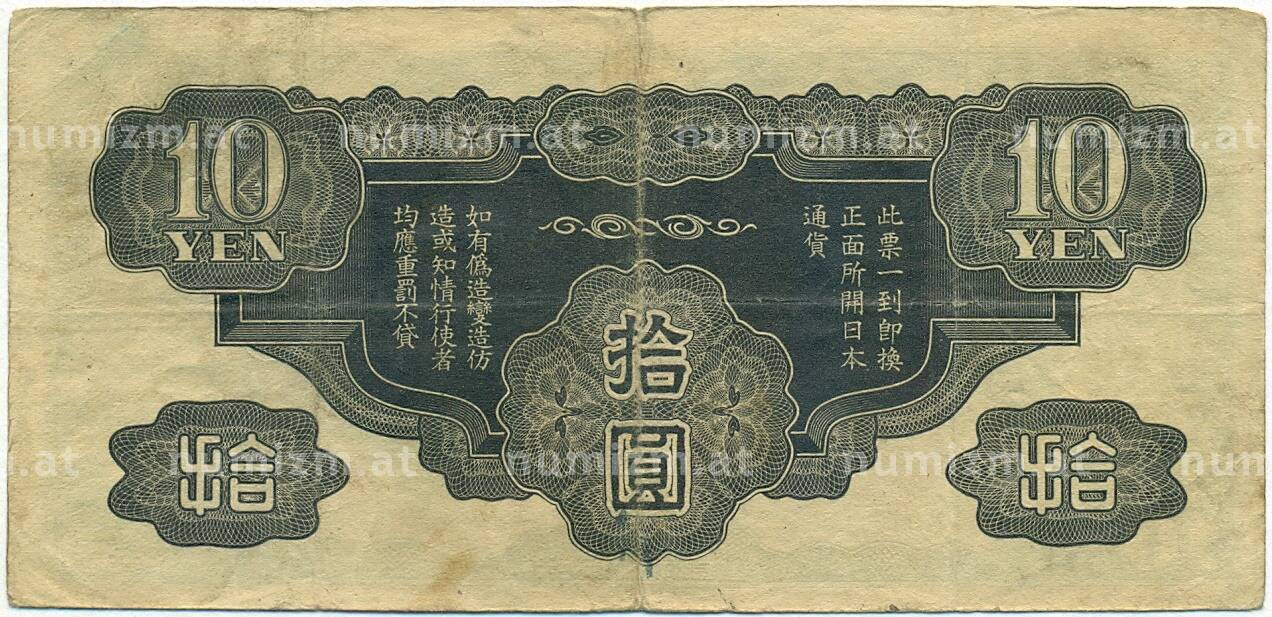 10
YEN
10
YEN
此票一到卽換
正面所開日本
通貨
如有僞造變造仿
造或知情行使者
均應重罰不貸
拾
圓
拾
拾
numizm.at numizm.at numizm.at numizm.at
m.at numizm.at numizm.at numizm.at num